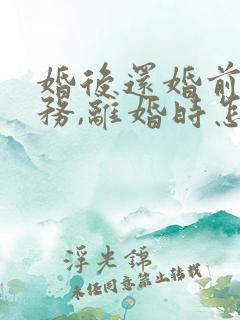 婚後還婚前
務,離婚時怎
浮光錦
未經同意禁止轉載